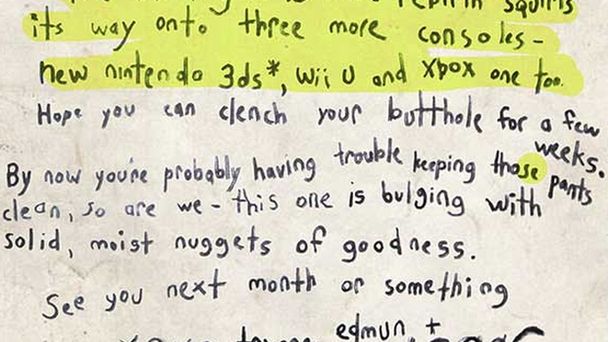 squirts
its way onto three more consoles -
new nintendo 3ds*, Wii U and Xbox one too.
Hope you can clench your butthole for a few
weeks.
By now you're probably having trouble keeping those pants
clean, so are we - this one is bulging with
solid, moist nuggets of goodness.
See you next month or something
edmun +